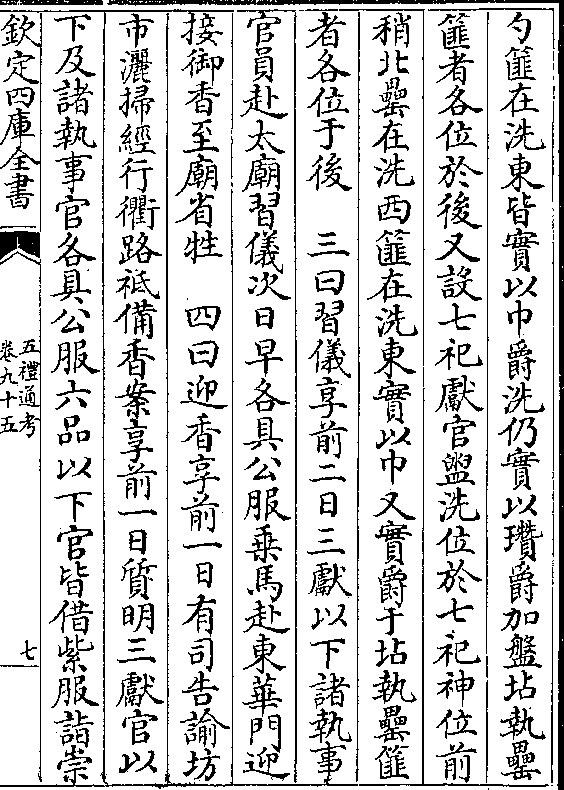 勺篚在洗東皆實以巾爵洗仍實以瓚爵加盤坫執罍
篚者各位於後又設七祀獻官盥洗位於七祀神位前
稍北罍在洗西篚在洗東實以巾又實爵于坫執罍篚
者各位于後　三曰習儀享前二日三獻以下諸執事
官員赴太廟習儀次日早各具公服乗馬赴東華門迎
接御香至廟省牲　四曰迎香享前一日有司告諭坊
市灑掃經行衢路祗備香案享前一日質明三獻官以
下及諸執事官各具公服六品以下官皆借紫服詣崇
欽定四庫全書
五禮通考
卷九十五
七